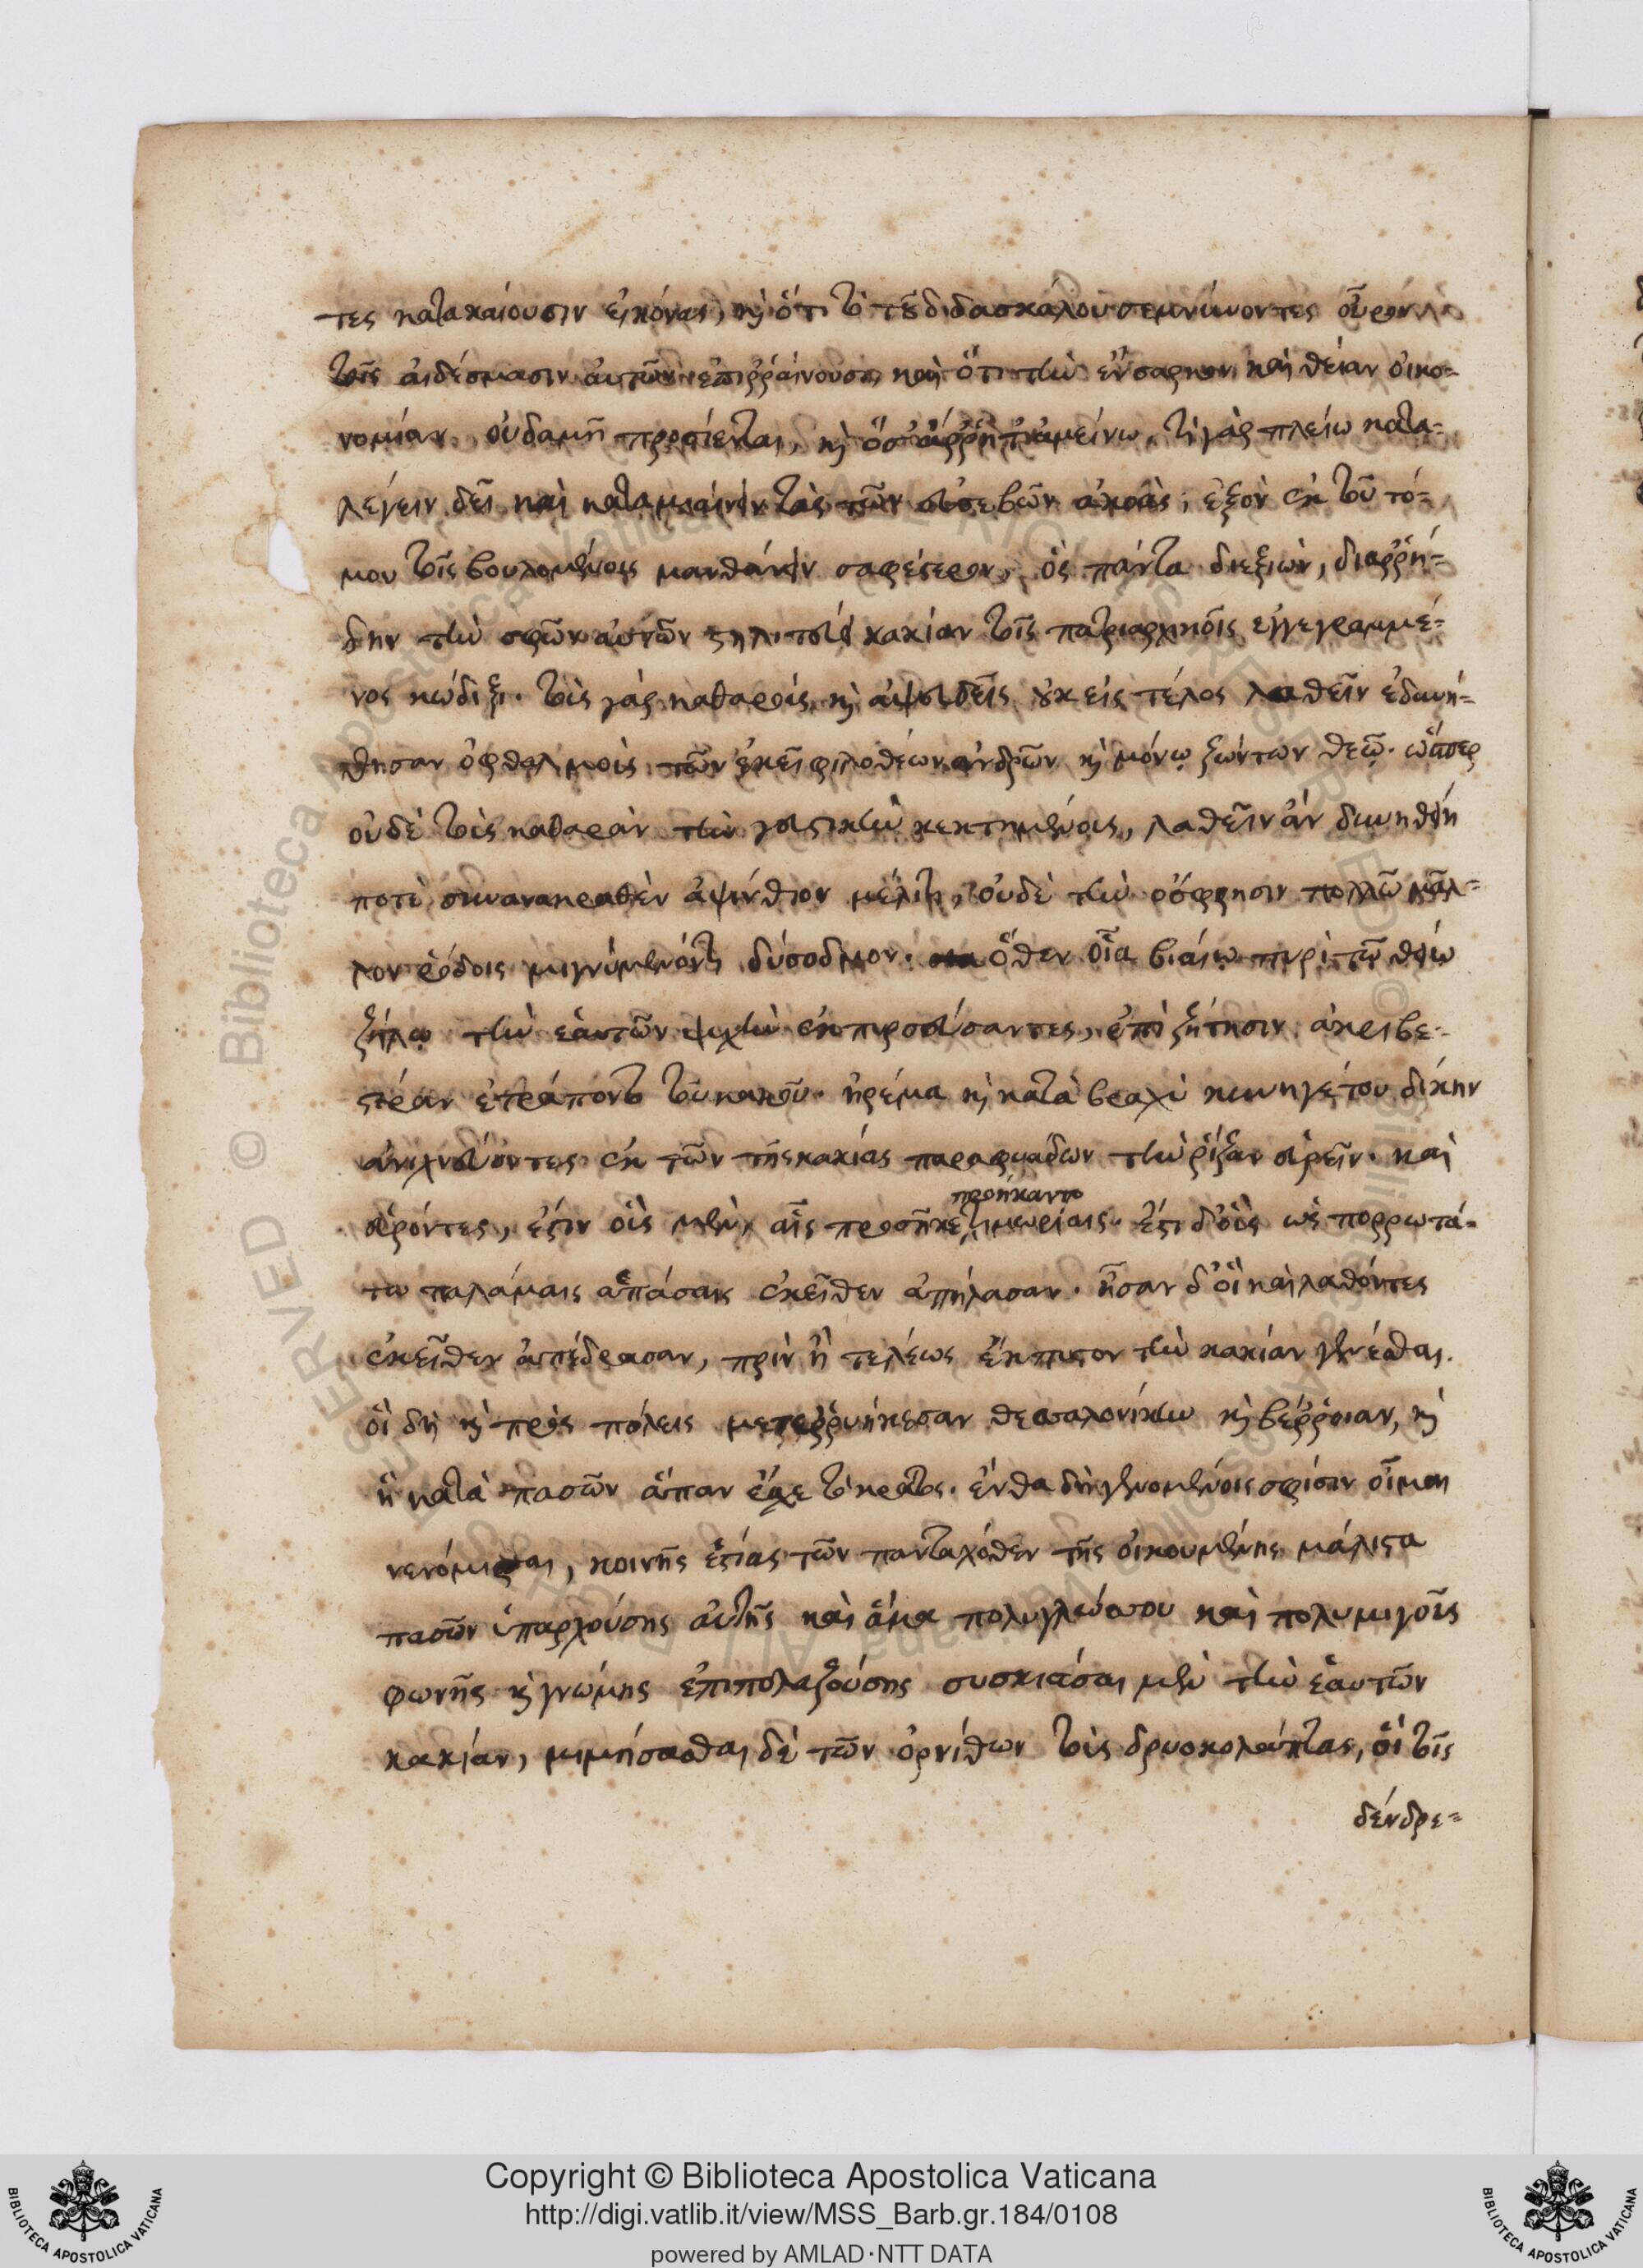 τες κατακαίουσιν εἰκόνας, καὶ ὅτι τὸ τοῦ διδασκάλου σεμνύνοντες οὖρον
τοῖς αἰδέσμασιν αὐτῶν ἐπιρραίνουσι, καὶ ὅτι τὴν ἔνσαρκον καὶ θείαν οἰκο-
νομίαν οὐδαμῆ προσίενται, καὶ ὅσ' ἄρρητα μείνω. τί γὰρ πλείω κατα-
λέγειν δεῖ καὶ καταμιαίνειν τὰς τῶν εὐσεβῶν ἀκοάς; ἐξὸν ἐκ τοῦ τό-
μου τοῖς βουλομένοις μανθάνειν σαφέστερον, ὃς πάντα διεξιὼν, διαρρή-
δην τὴν σφῶν αὐτῶν στηλιτεύει κακίαν τοῖς πατριαρχικοῖς ἐγγεγραμμέ-
νος κώδιξι. τοὺς γὰρ καθαροὺς καὶ ἀψευδεῖς οὐκ εἰς τέλος λαθεῖν ἐδυνή-
θησαν ὀφθαλμοὺς τῶν ἐκεῖ φιλοθέων ἀνδρῶν καὶ μόνῳ ζώντων θεῷ. ὥσπερ
οὐδὲ τοὺς καθαρὰν τὴν γευστικὴν κεκτημένους, λαθεῖν ἂν δυνηθείη
ποτὲ συνανακραθὲν ἀψίνθιον μέλιτι, οὐδὲ τὴν ὄσφρησιν πολλῶ μᾶλ-
λον ῥόδοις μιγνύμενόν τι δύσοδμον. ὅθεν οἷα βιαίῳ πυρὶ τῷ θείῳ
ζήλῳ τὴν ἑαυτῶν ψυχὴν ἐκπυρσεύσαντες, ἐπὶ ζήτησιν ἀκριβε-
στέραν ἐτράποντο τοῦ κακοῦ. ἠρέμα καὶ κατὰ βραχὺ κυνηγέτου δίκην
ἀνιχνεύοντες ἐκ τῶν τῆς κακίας παραφυάδων τὴν ῥίζαν εὑρεῖν. καὶ
προήκαντο
εὑρόντες, ἔστιν οὓς μὲν, αἷς προσῆκε τιμωρίαις. ἔστι δ' οὓς ὡς πορρωτά-
τω παλάμαις ἁπάσαις ἐκεῖθεν ἀπήλασαν. ἦσαν δ' οἳ καὶ λαθόντες
ἐκεῖθεν ἀπέδρασαν, πρὶν ἢ τελέως ἔκπυστον τὴν κακίαν γενέσθαι.
οἳ δὴ καὶ πρὸς πόλεις μετερρυήκεσαν θεσσαλονίκην καὶ βέρροιαν, καὶ
ἣ κατὰ πασῶν ἅπαν ἔσχε τὸ κράτος. ἔνθα δὴ γενομένοις σφίσιν οἶμαι
νενόμισται, κοινῆς ἑστίας τῶν πανταχόθεν τῆς οἰκουμένης μάλιστα
πασῶν ὑπαρχούσης αὐτῆς καὶ ἅμα πολυγλώσσου καὶ πολυμιγοῦς
φωνῆς καὶ γνώμης ἐπιπολαζούσης συσκιάσαι μὲν τὴν ἑαυτῶν
κακίαν, μιμήσασθαι δὲ τῶν ὀρνίθων τοὺς δρυοκολάπτας, οἳ τοῖς
δένδρε-
Copyright © Biblioteca Apostolica Vaticana
http://digi.vatlib.it/view/MSS_Barb.gr.184/0108
powered by AMLAD·NTT DATA
BIBLIOTECA APOSTOLICA VATICANA
BIBLIOTECA APOSTOLICA VATICANA